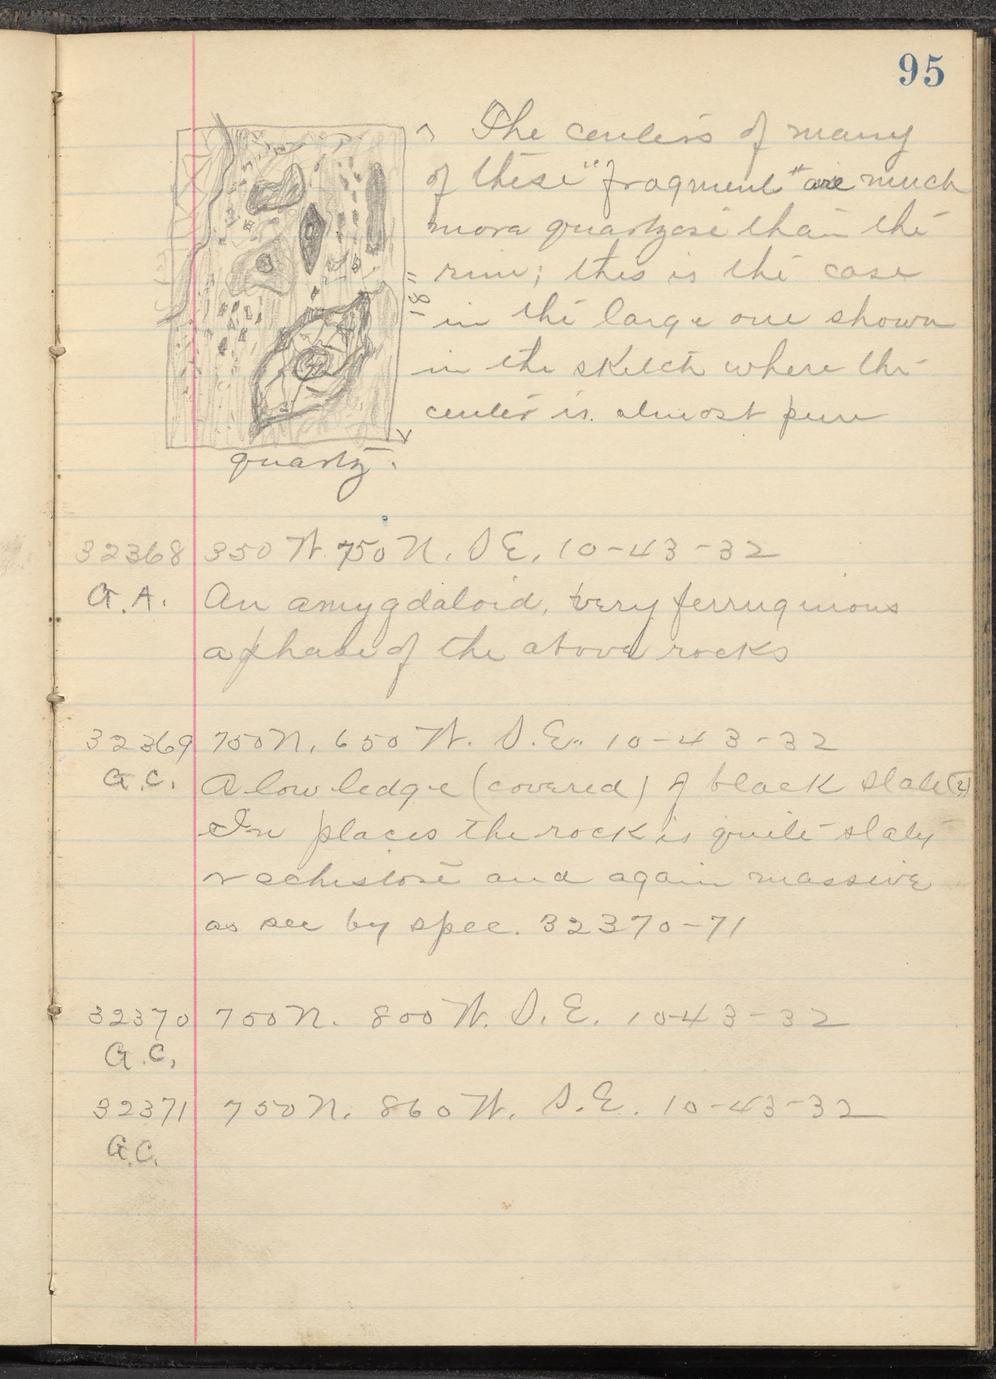 95
The centers of many
of these "fragment" are much
more quartzose than the
rim; this is the case
18"
in the large one shown
in the sketch where the
center is almost pure
quartz.
32368 350 W. 750 N. S E. 10-43-32
G.A. An amygdaloid, very ferruginous
a phase of the above rocks
32369 750 N. 650 W. S.E. 10-43-32
G.C. A low ledge (covered) of black slate (?)
In places the rock is quite slaty
r schistose and again massive
as see by spec. 32370-71
32370 700 N. 800 W. S.E. 10-43-32
G.C.
32371 750 N. 860 W. S.E. 10-43-32
G.C.